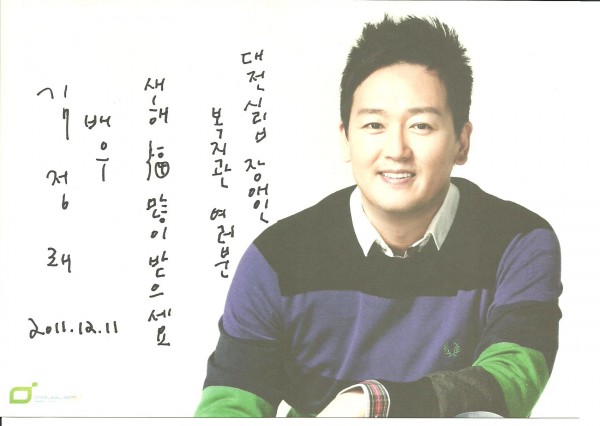 대전 시립 장애인
복지관 여러분
새해 福 많이 받으세요
배우
김 정 래
2011.12.11